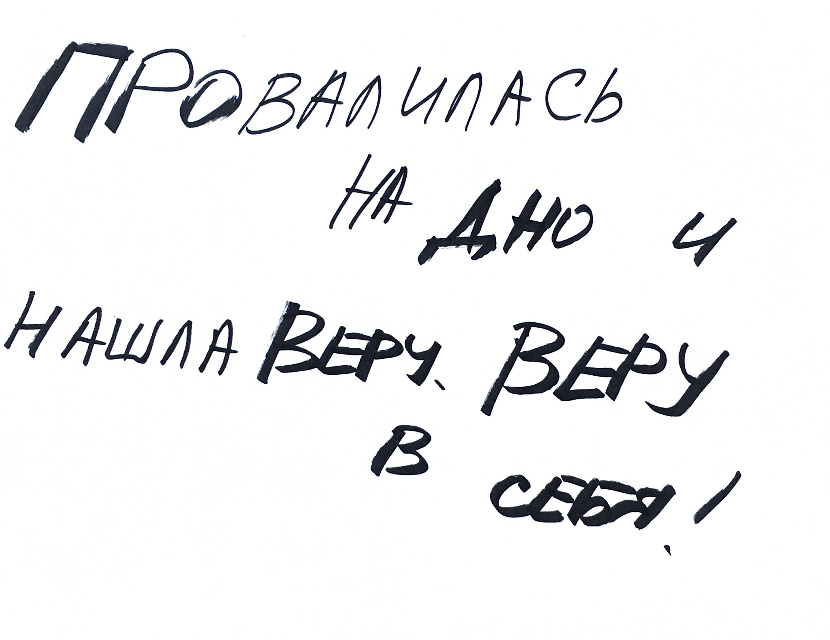 ПРОВАЛИЛАСЬ
НА ДНО И
НАШЛА ВЕРУ. ВЕРУ
В
СЕБЯ!